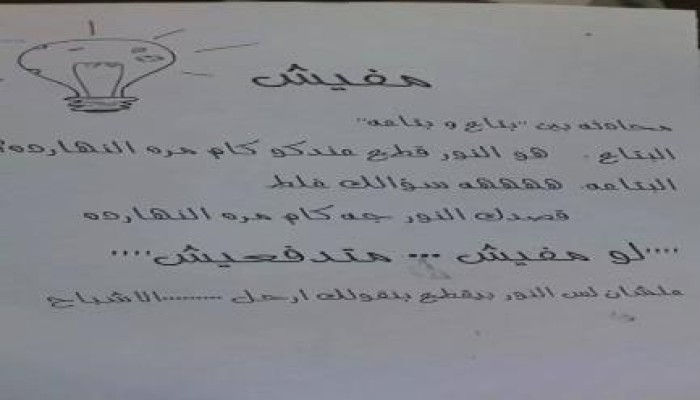 مفيش
محادثه بين "بتاع و بتاعه"
البتاع. هو النور قطع عندكو كام مره النهارده؟
البتاعه. هههههه سؤالك غلط
قصدك النور جه كام مره النهارده
....لو مفيش ... متدفعيش....
علشان لس النور بيقطع بنقولك ارحل .........الاشباح